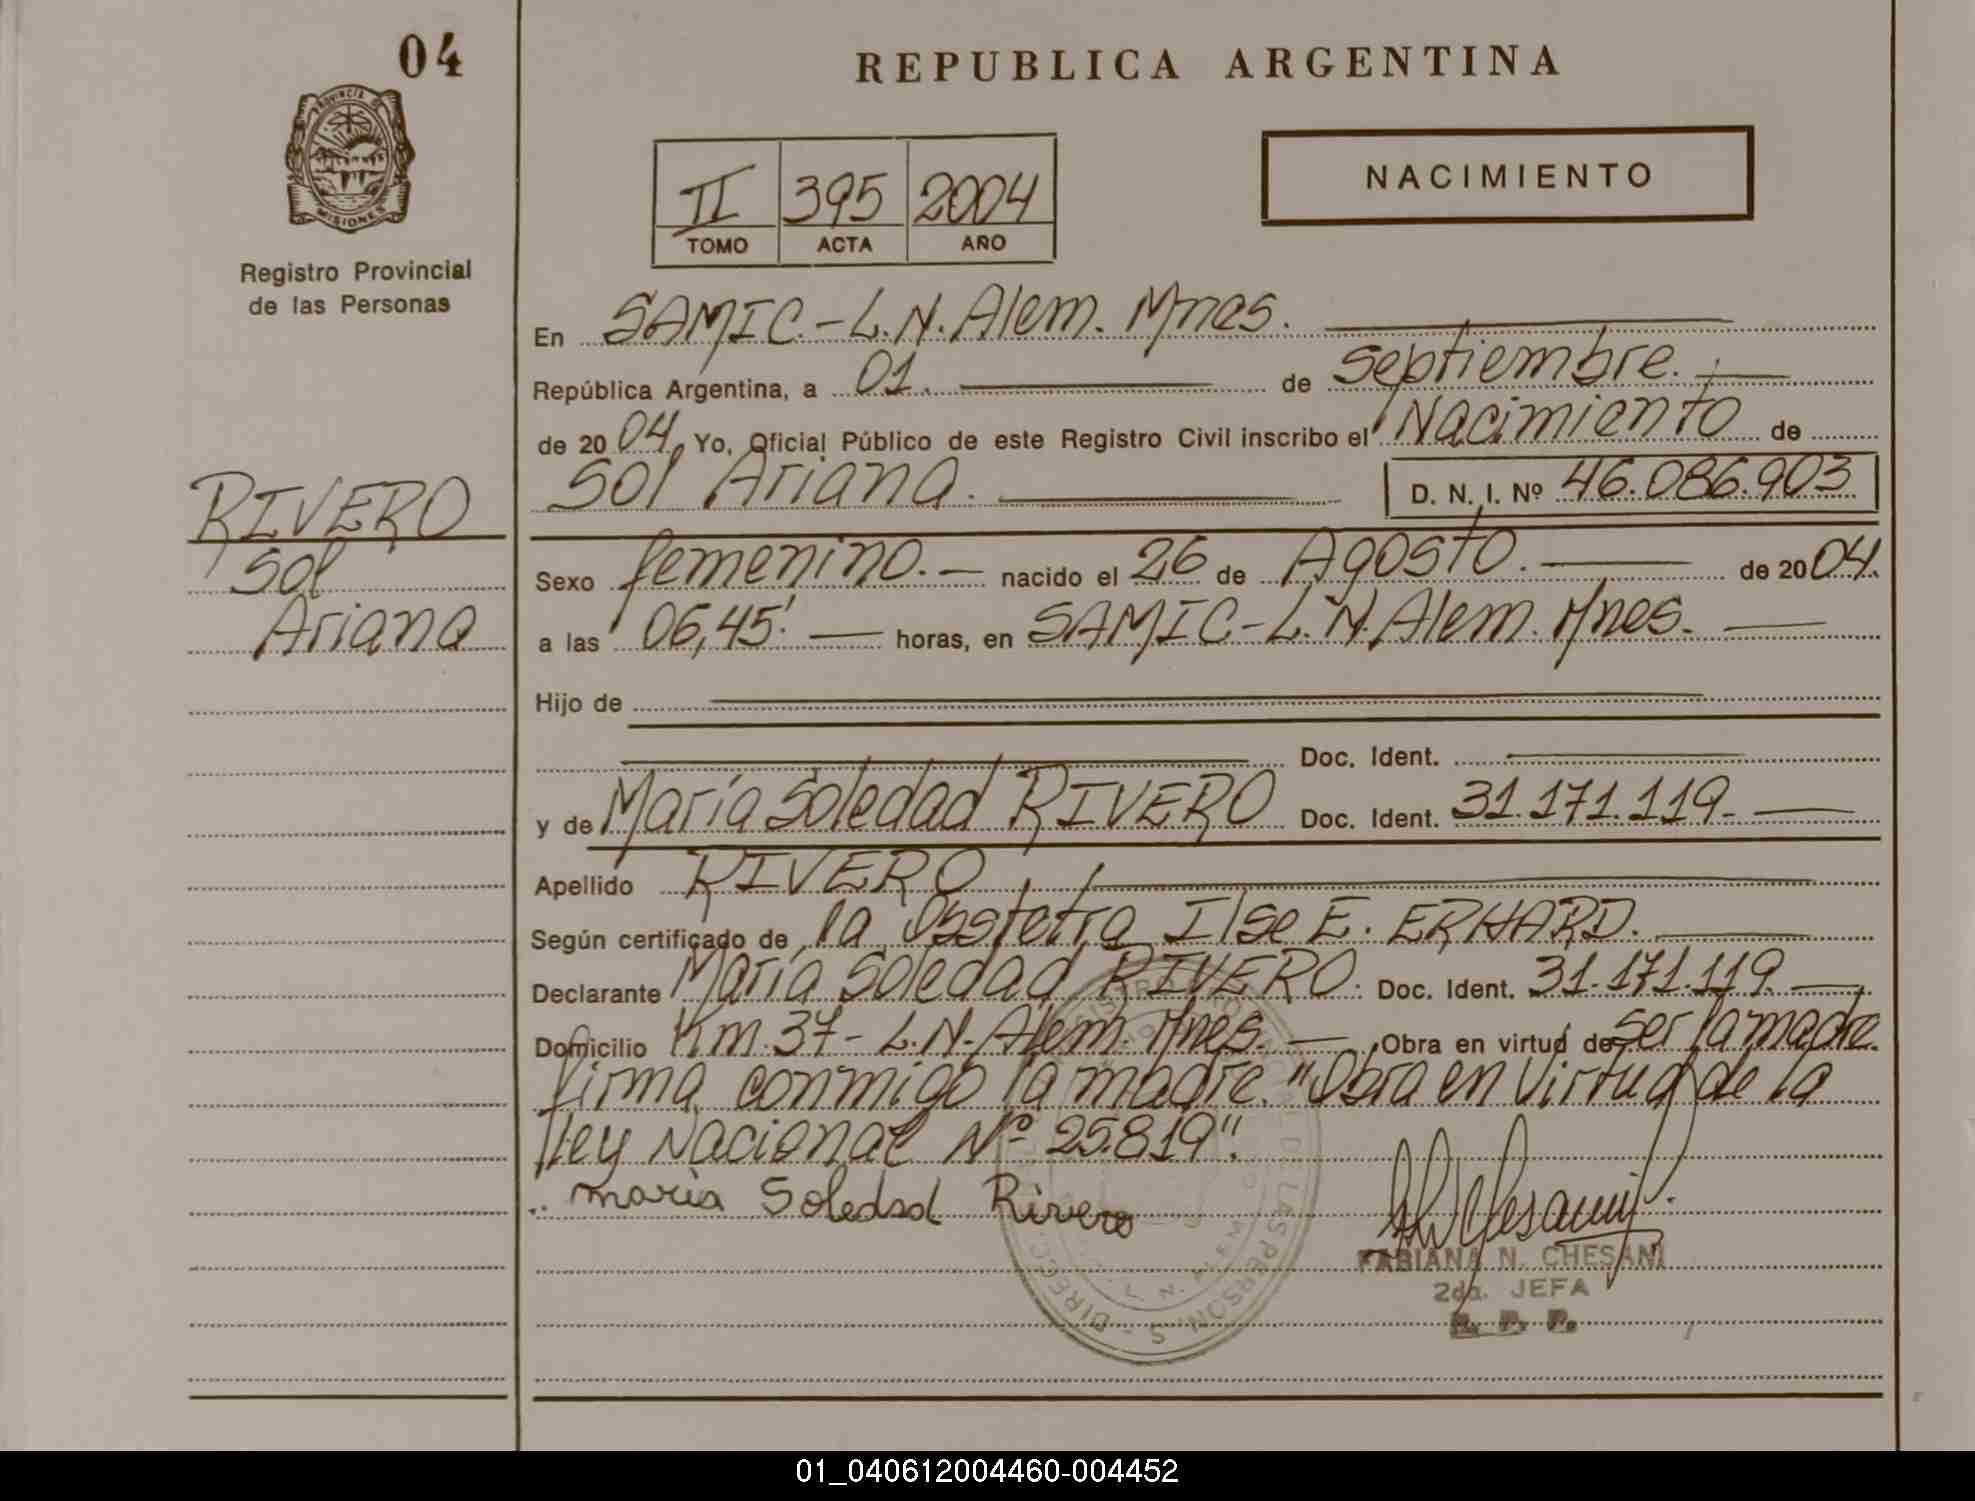 04
PROVINCIA DE
MISIONES
Registro Provincial
de las Personas
RIVERO
Sol
Ariana
REPUBLICA ARGENTINA
II 395 2004
TOMO ACTA AÑO
NACIMIENTO
En SAMIC.-L.N.Alem. Mnes.
República Argentina, a 01. de Septiembre.
de 2004, Yo, Oficial Público de este Registro Civil inscribo el Nacimiento de
Sol Ariana. D. N. I. Nº 46.086.903
Sexo femenino. nacido el 26 de Agosto. de 2004.
a las 06,45'. horas, en SAMIC-L.N.Alem. Mnes.
Hijo de
Doc. Ident.
y de María Soledad RIVERO Doc. Ident. 31.171.119.
Apellido RIVERO
Según certificado de la Obstetra Ilse E. ERHARD.
Declarante María Soledad RIVERO. Doc. Ident. 31.171.119.
Domicilio Km.37-L.N.Alem. Mnes. Obra en virtud de ser la madre.
firma conmigo la madre. "Obra en Virtud de la
ley Nacional Nº 25.819".
maria Soledad Rivero
FABIANA N. CHESANI
2da. JEFA
R. P. P.
01_040612004460-004452